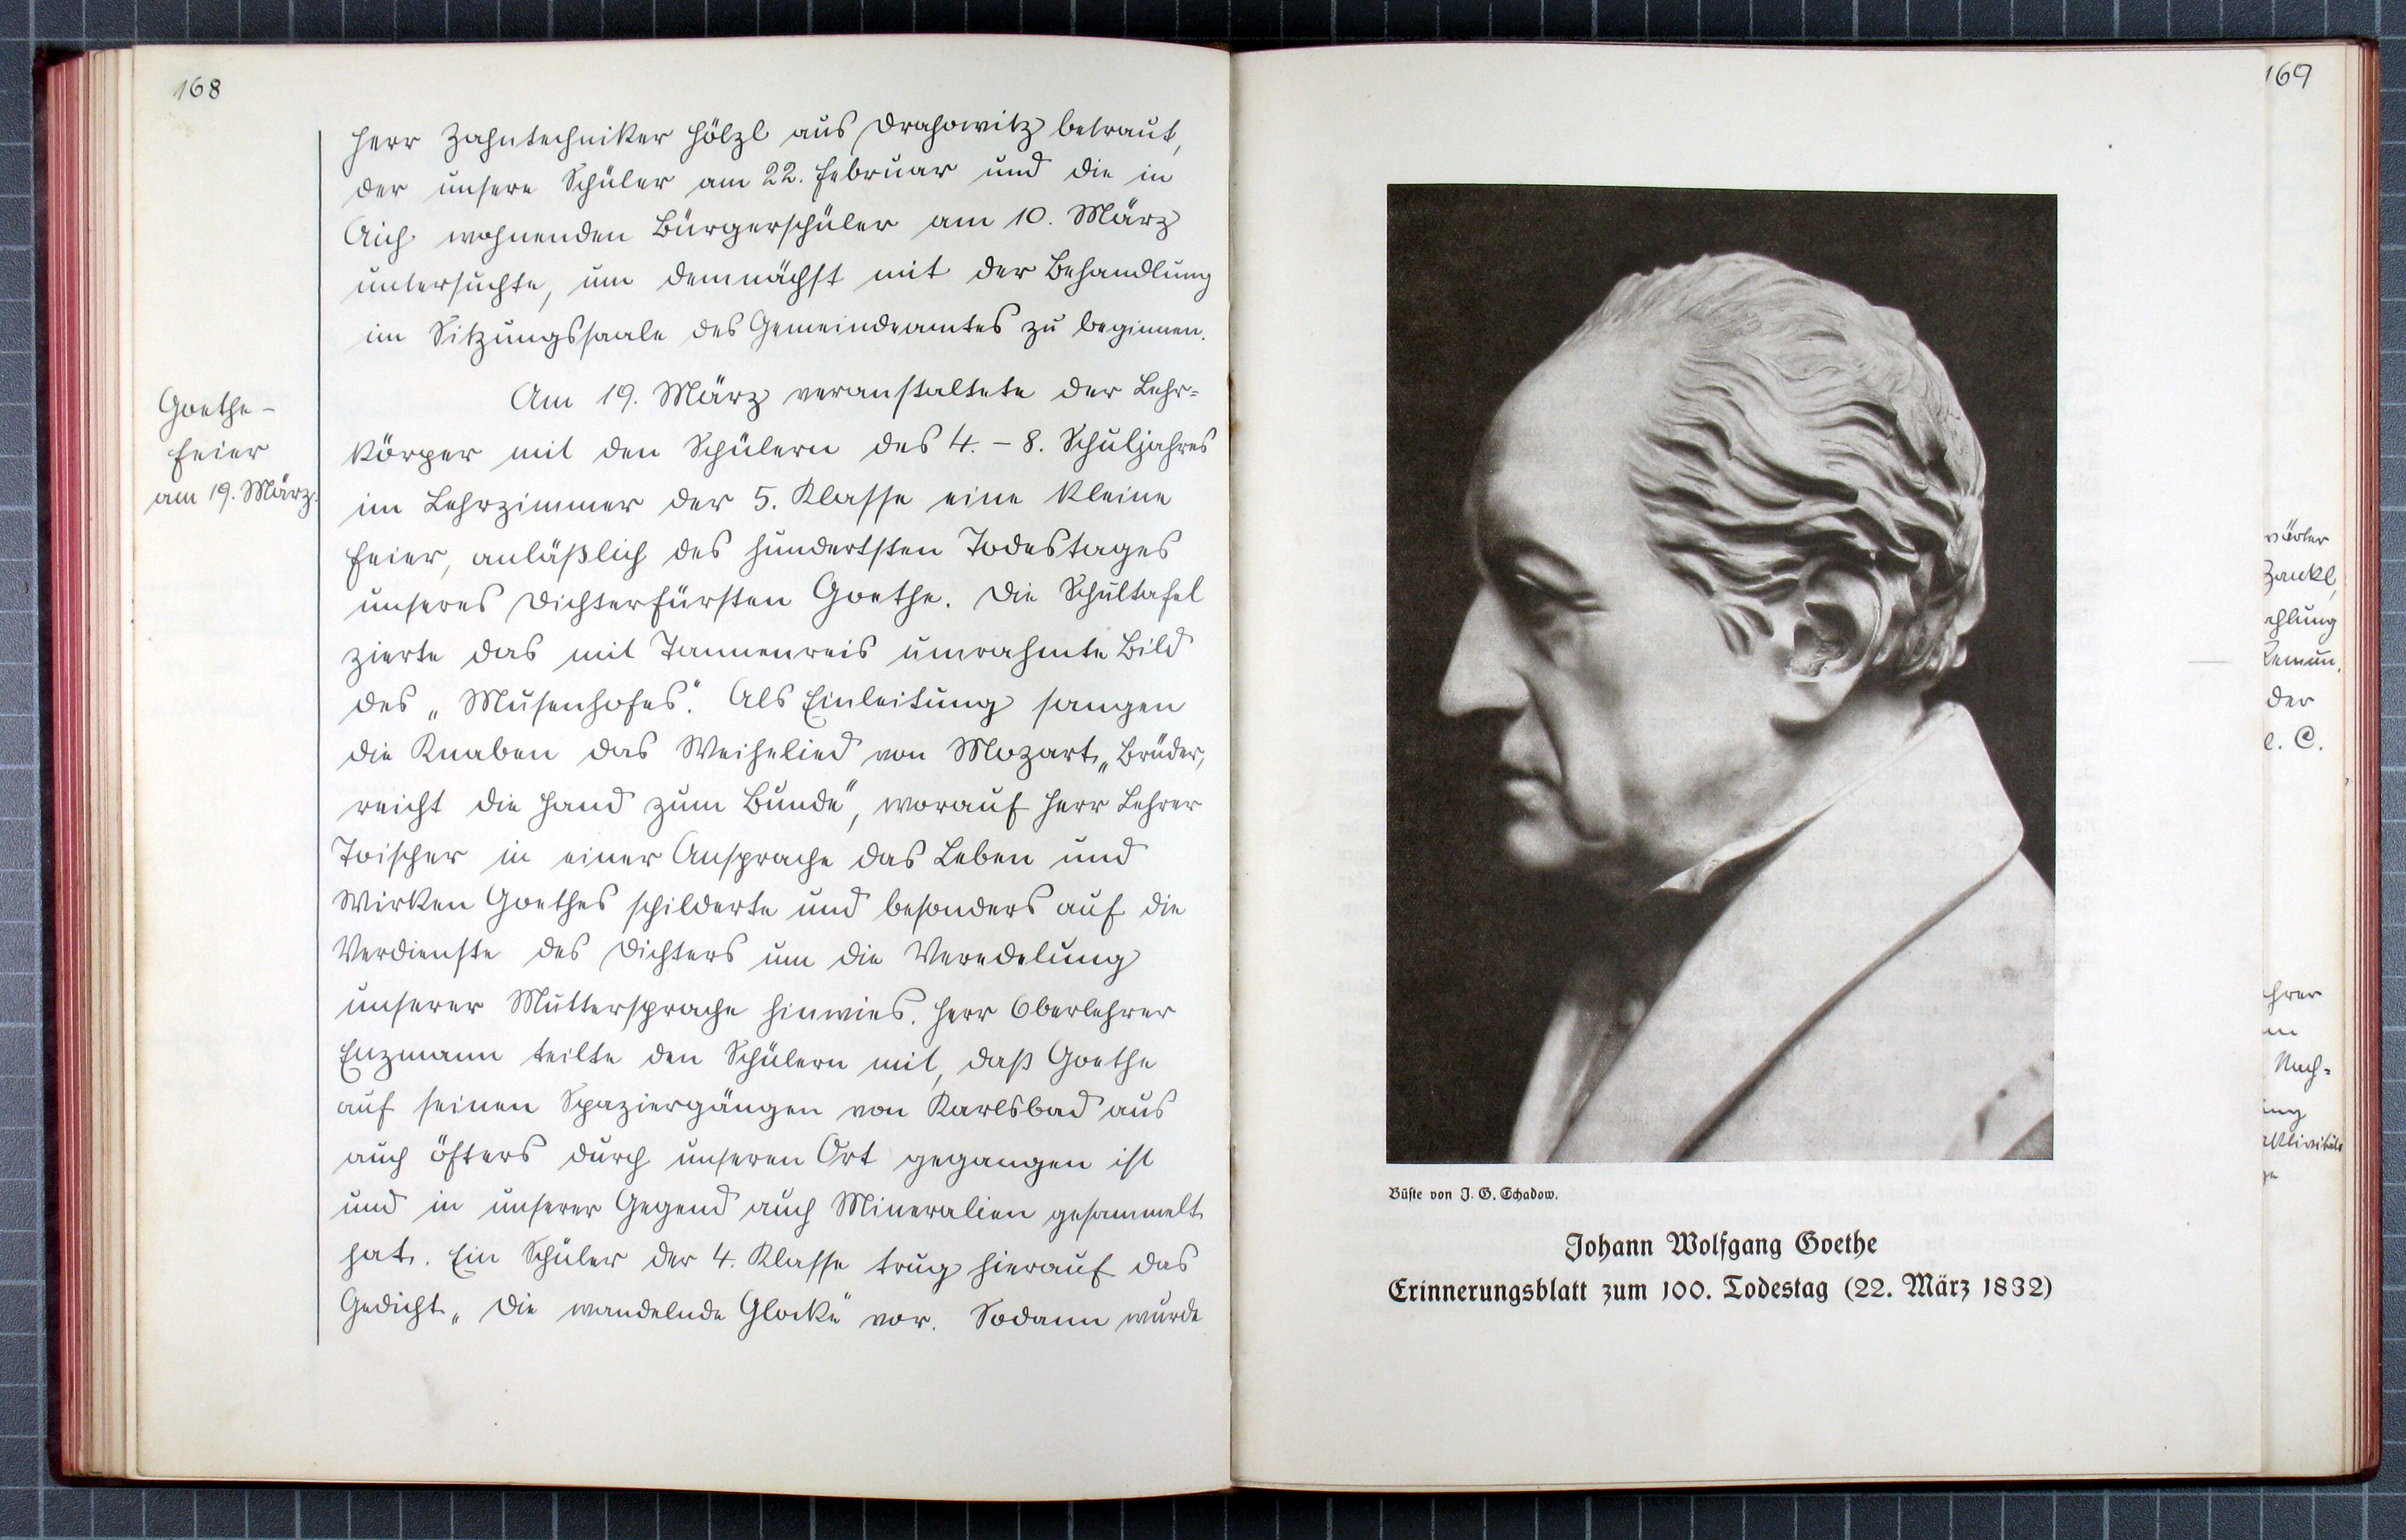 168
Herr Zahntechniker Hölzl aus Drahowitz betraut,
der unsere Schüler am 22. Februar und die in
Aich wohnenden Bürgerschüler am 10. März
untersuchte, um demnächst mit der Behandlung
im Sitzungssaale des Gemeindeamtes zu beginnen.
Goethe-
feier
am 19. März.
Am 19. März veranstaltete der Lehr-
körper mit den Schülern des 4. - 8. Schuljahres
im Lehrzimmer der 5. Klasse eine kleine
Feier, anläßlich des hundertsten Todestages
unseres Dichterfürsten Goethe. Die Schultafel
zierte das mit Tannenreis umrahmte Bild
des „Musenhofes". Als Einleitung sangen
die Knaben das Weihelied von Mozart „Brüder,
reicht die Hand zum Bunde", worauf Herr Lehrer
Toischer in einer Ansprache das Leben und
Wirken Goethes schilderte und besonders auf die
Verdienste des Dichters um die Veredelung
unserer Muttersprache hinwies. Herr Oberlehrer
Enzmann teilte den Schülern mit, daß Goethe
auf seinen Spaziergängen von Karlsbad aus
auch öfters durch unseren Ort gegangen ist
und in unserer Gegend auch Mineralien gesammelt
hat. Ein Schüler der 4. Klasse trug hierauf das
Gedicht „Die wandelnde Glocke" vor. Sodann wurde
169
Zankl,
der
e. C.
Nach-
Büste von J. G. Schadow.
Johann Wolfgang Goethe
Erinnerungsblatt zum 100. Todestag (22. März 1832)